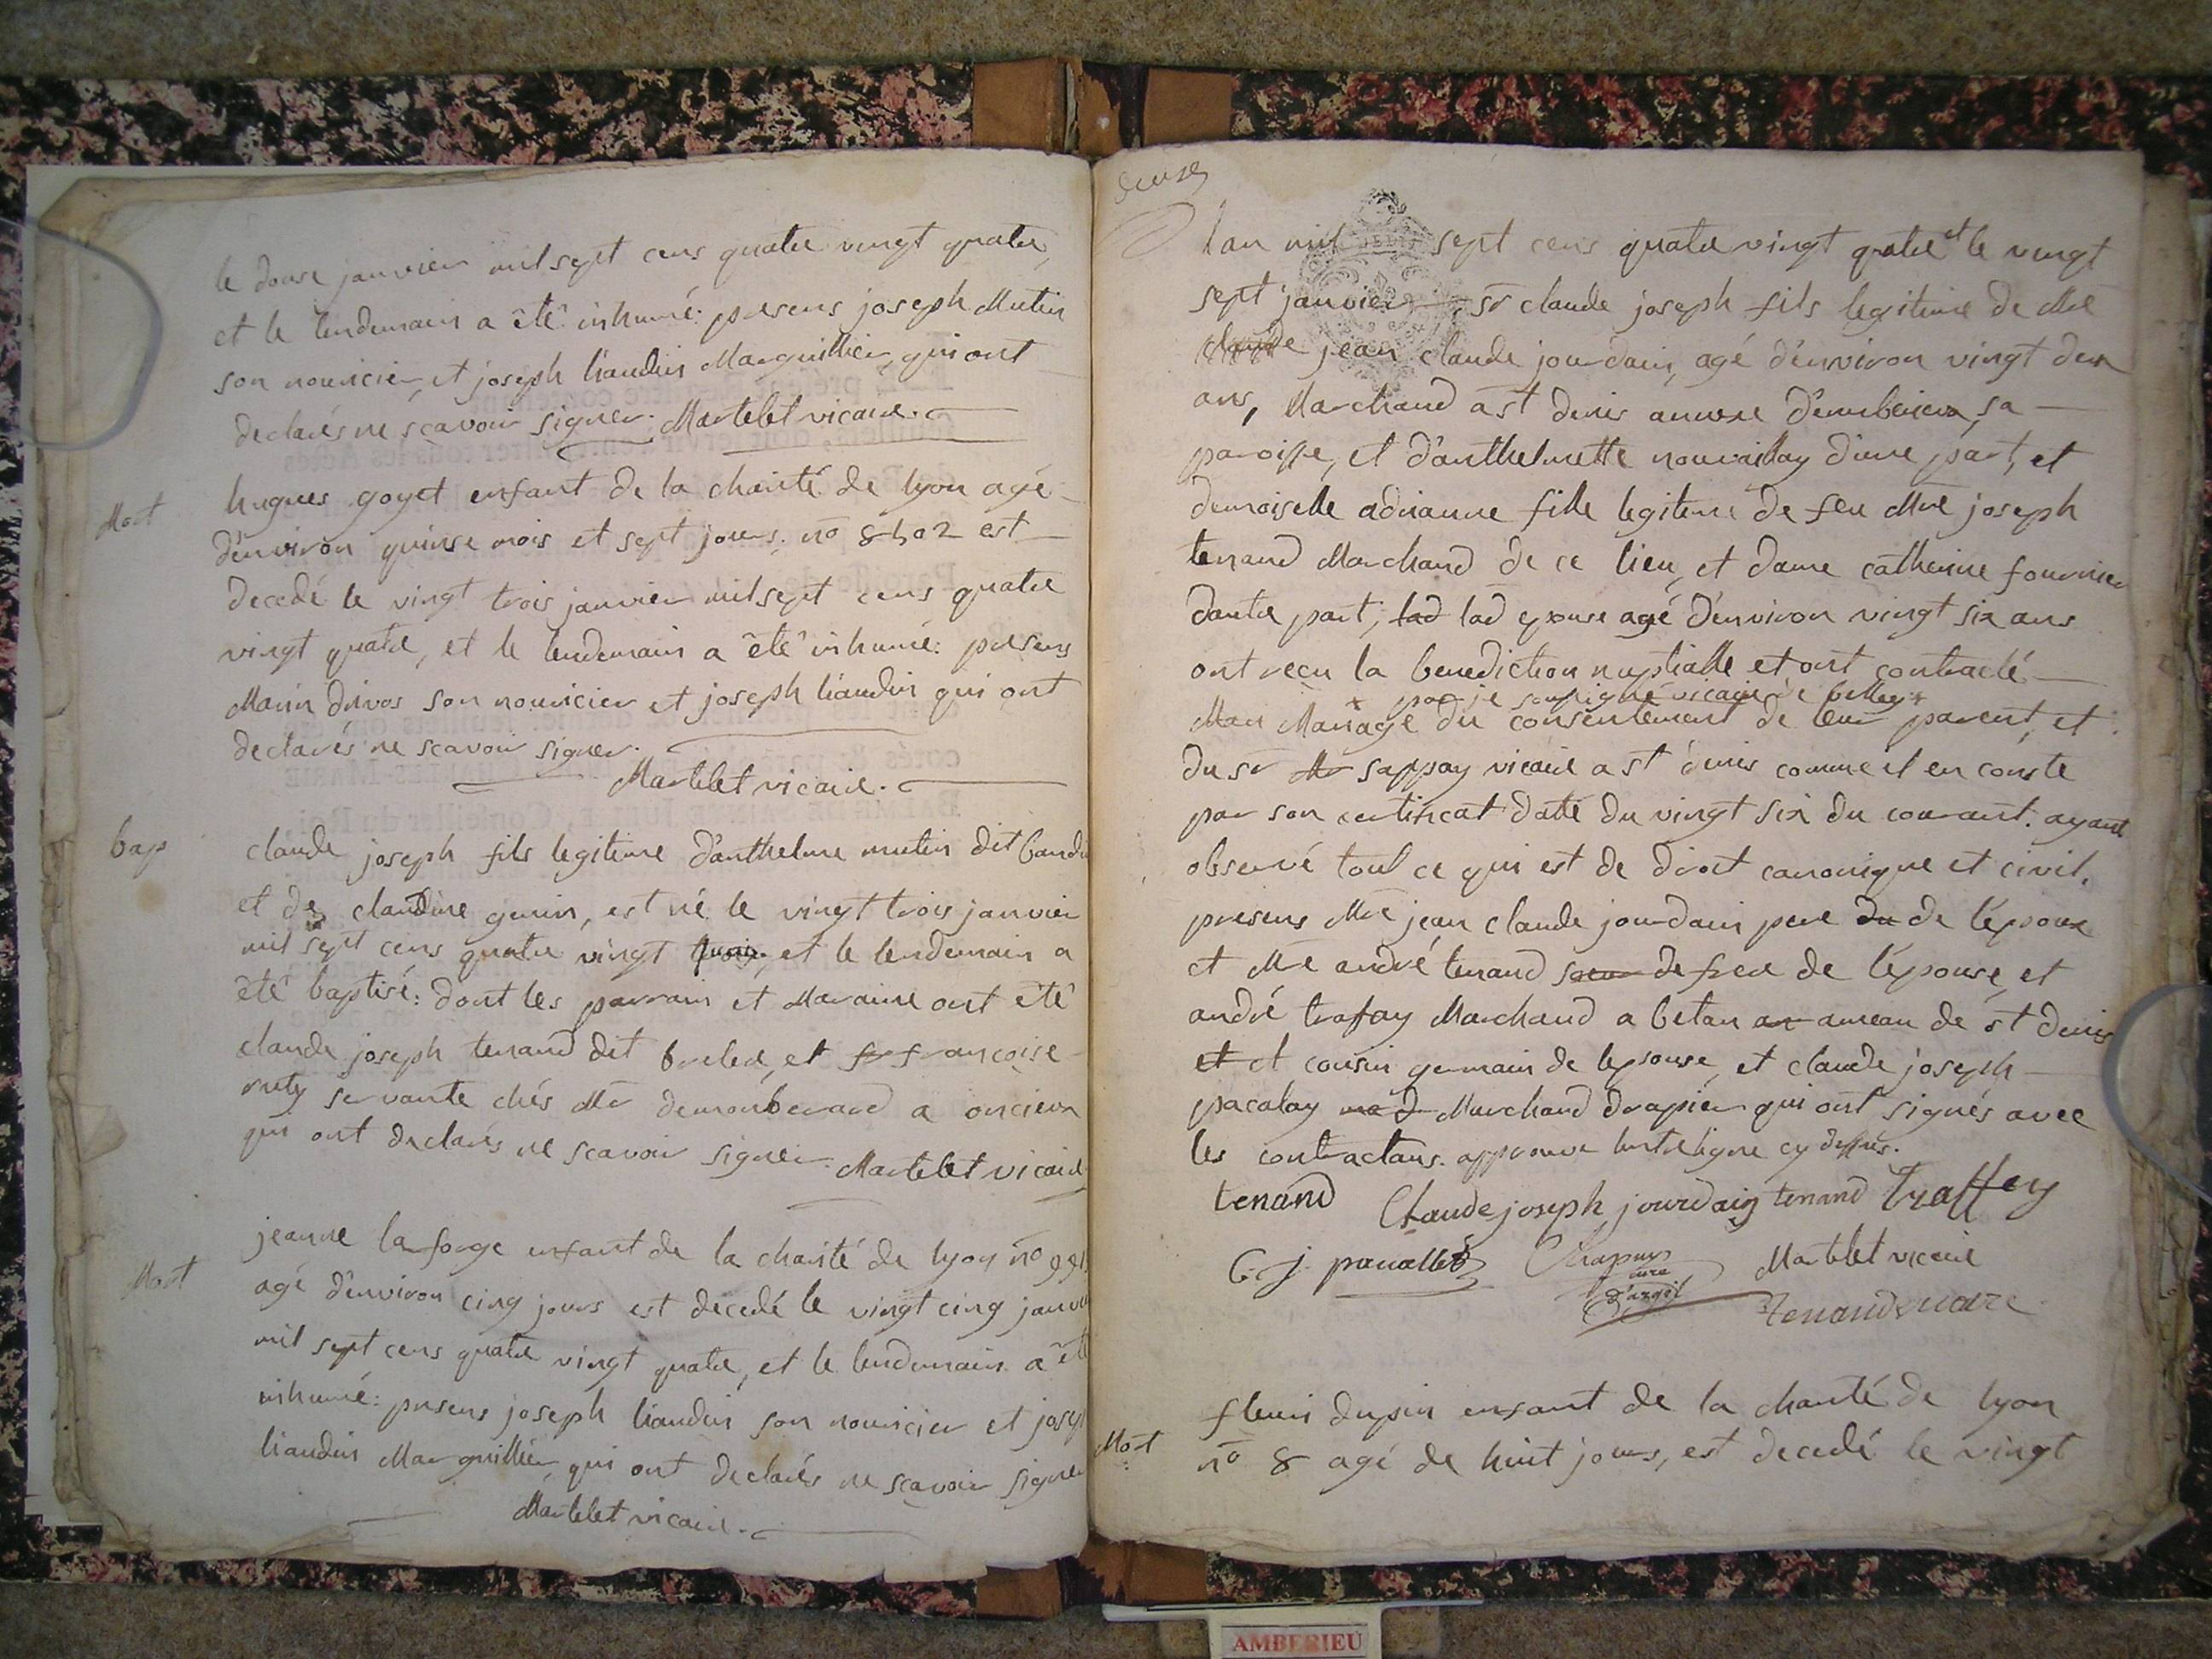 le douse janvier mil sept cens quatre vingt quatre,
et le lendemain a été inhumé: presens joseph Mutin
son nouricier, et joseph liaudin Marguillier, qui ont
declarés ne sçavoir signer. Martelet vicaire.
Mort
hugues goyet enfant de la charité de lyon agé
d'environ quinse mois et sept jours. no 8502 est
decedé le vingt trois janvier mil sept cens quatre
vingt quatre, et le lendemain a été inhumé: presens
Marin drivos son nouricier et joseph liaudin qui ont
declarés ne scavoir signer.
Martelet vicaire.
bap
claude joseph fils legitime d'anthelme mutin dit
et de claudine genin, est né le vingt trois janvier
mil sept cens quatre vingt et le lendemain a
été baptisé: dont les parrain et Maraine ont été
claude joseph tenand dit et fr françoise
servante chés Mr a oncieux
qui ont declarés ne scavoir signer. Martelet vicaire
Mort
jeanne laforge enfant de la charité de lyon no
agé d'environ cinq jours est decedé le vingt cinq janvi
mil sept cens quatre vingt quatre, et le lendemain a été
inhumé: presens joseph liaudin son nouricier et josep
liaudin Marguillier, qui ont declarés ne scavoir signer
Martelet vicaire.
lan mil sept cens quatre vingt quatre et le vingt
sept janvier sr claude joseph fils legitime de Mre
claude jean claude jourdain, agé d'environ vingt deux
ans, Marchand a st denis annexe d'emberieux, sa
paroisse, et d'anthelmette d'une part, et
demoiselle adrianne fille legitime de feu Mre joseph
tenand Marchand de ce lieu, et dame catherine fournier
dautre part; lad lad epouse agé d'environ vingt six ans
ont reçu la benediction nuptialle et ont contracté
par je soussigné vicaire de
Mari Mariage du consentement de leur parent, et
du sr Mr sappay vicaire a st denis comme il en conste
par son certificat daté du vingt six du courant. ayant
observé tout ce qui est de droit canonique et civil.
presens Mre jean claude jourdain pere du de l'époux
et Mre andré tenand soeur de frere de l'épouse, et
andré trafay Marchand a betan an ameau de st denis
et et cousin germain de lepouse, et claude joseph
pacalay Marchand drapier qui ont signés avec
les contractans. approuve lentreligne cy dessus.
tenand Claude joseph jourdain tenand traffey
C. j. Chapuy Martelet vicaire
cure
d'argil
Tenand
Mort
fleuri dupin enfant de la charité de lyon
no 8 agé de huit jours, est decedé le vingt
AMBERIEU